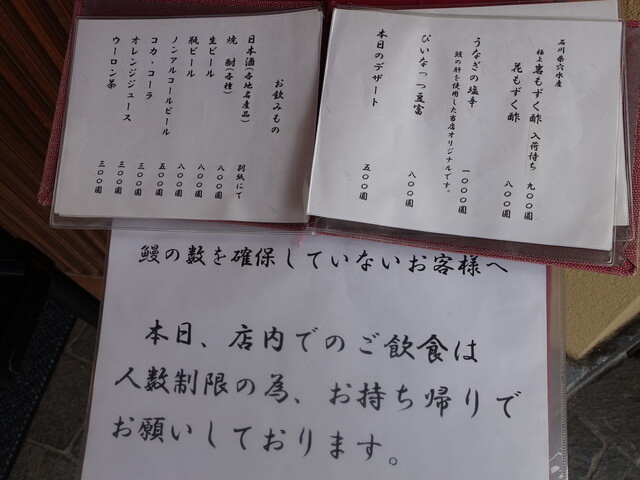 石川県穴水産
極上岩もずく酢 入荷待ち 九〇〇圓
花もずく酢 八〇〇圓
うなぎの塩辛 一〇〇〇圓
鰻の肝を使用した当店オリジナルです。
ぴいなっつ豆富 八〇〇圓
本日のデザート 五〇〇圓
お飲みもの
日本酒(各地名産品) 別紙にて
焼酎(各種) 八〇〇圓
生ビール 八〇〇圓
瓶ビール 八〇〇圓
ノンアルコールビール 五〇〇圓
コカ・コーラ 三〇〇圓
オレンジジュース 三〇〇圓
ウーロン茶 三〇〇圓
鰻の数を確保していないお客様へ
本日、店内でのご飲食は
人数制限の為、お持ち帰りで
お願いしております。